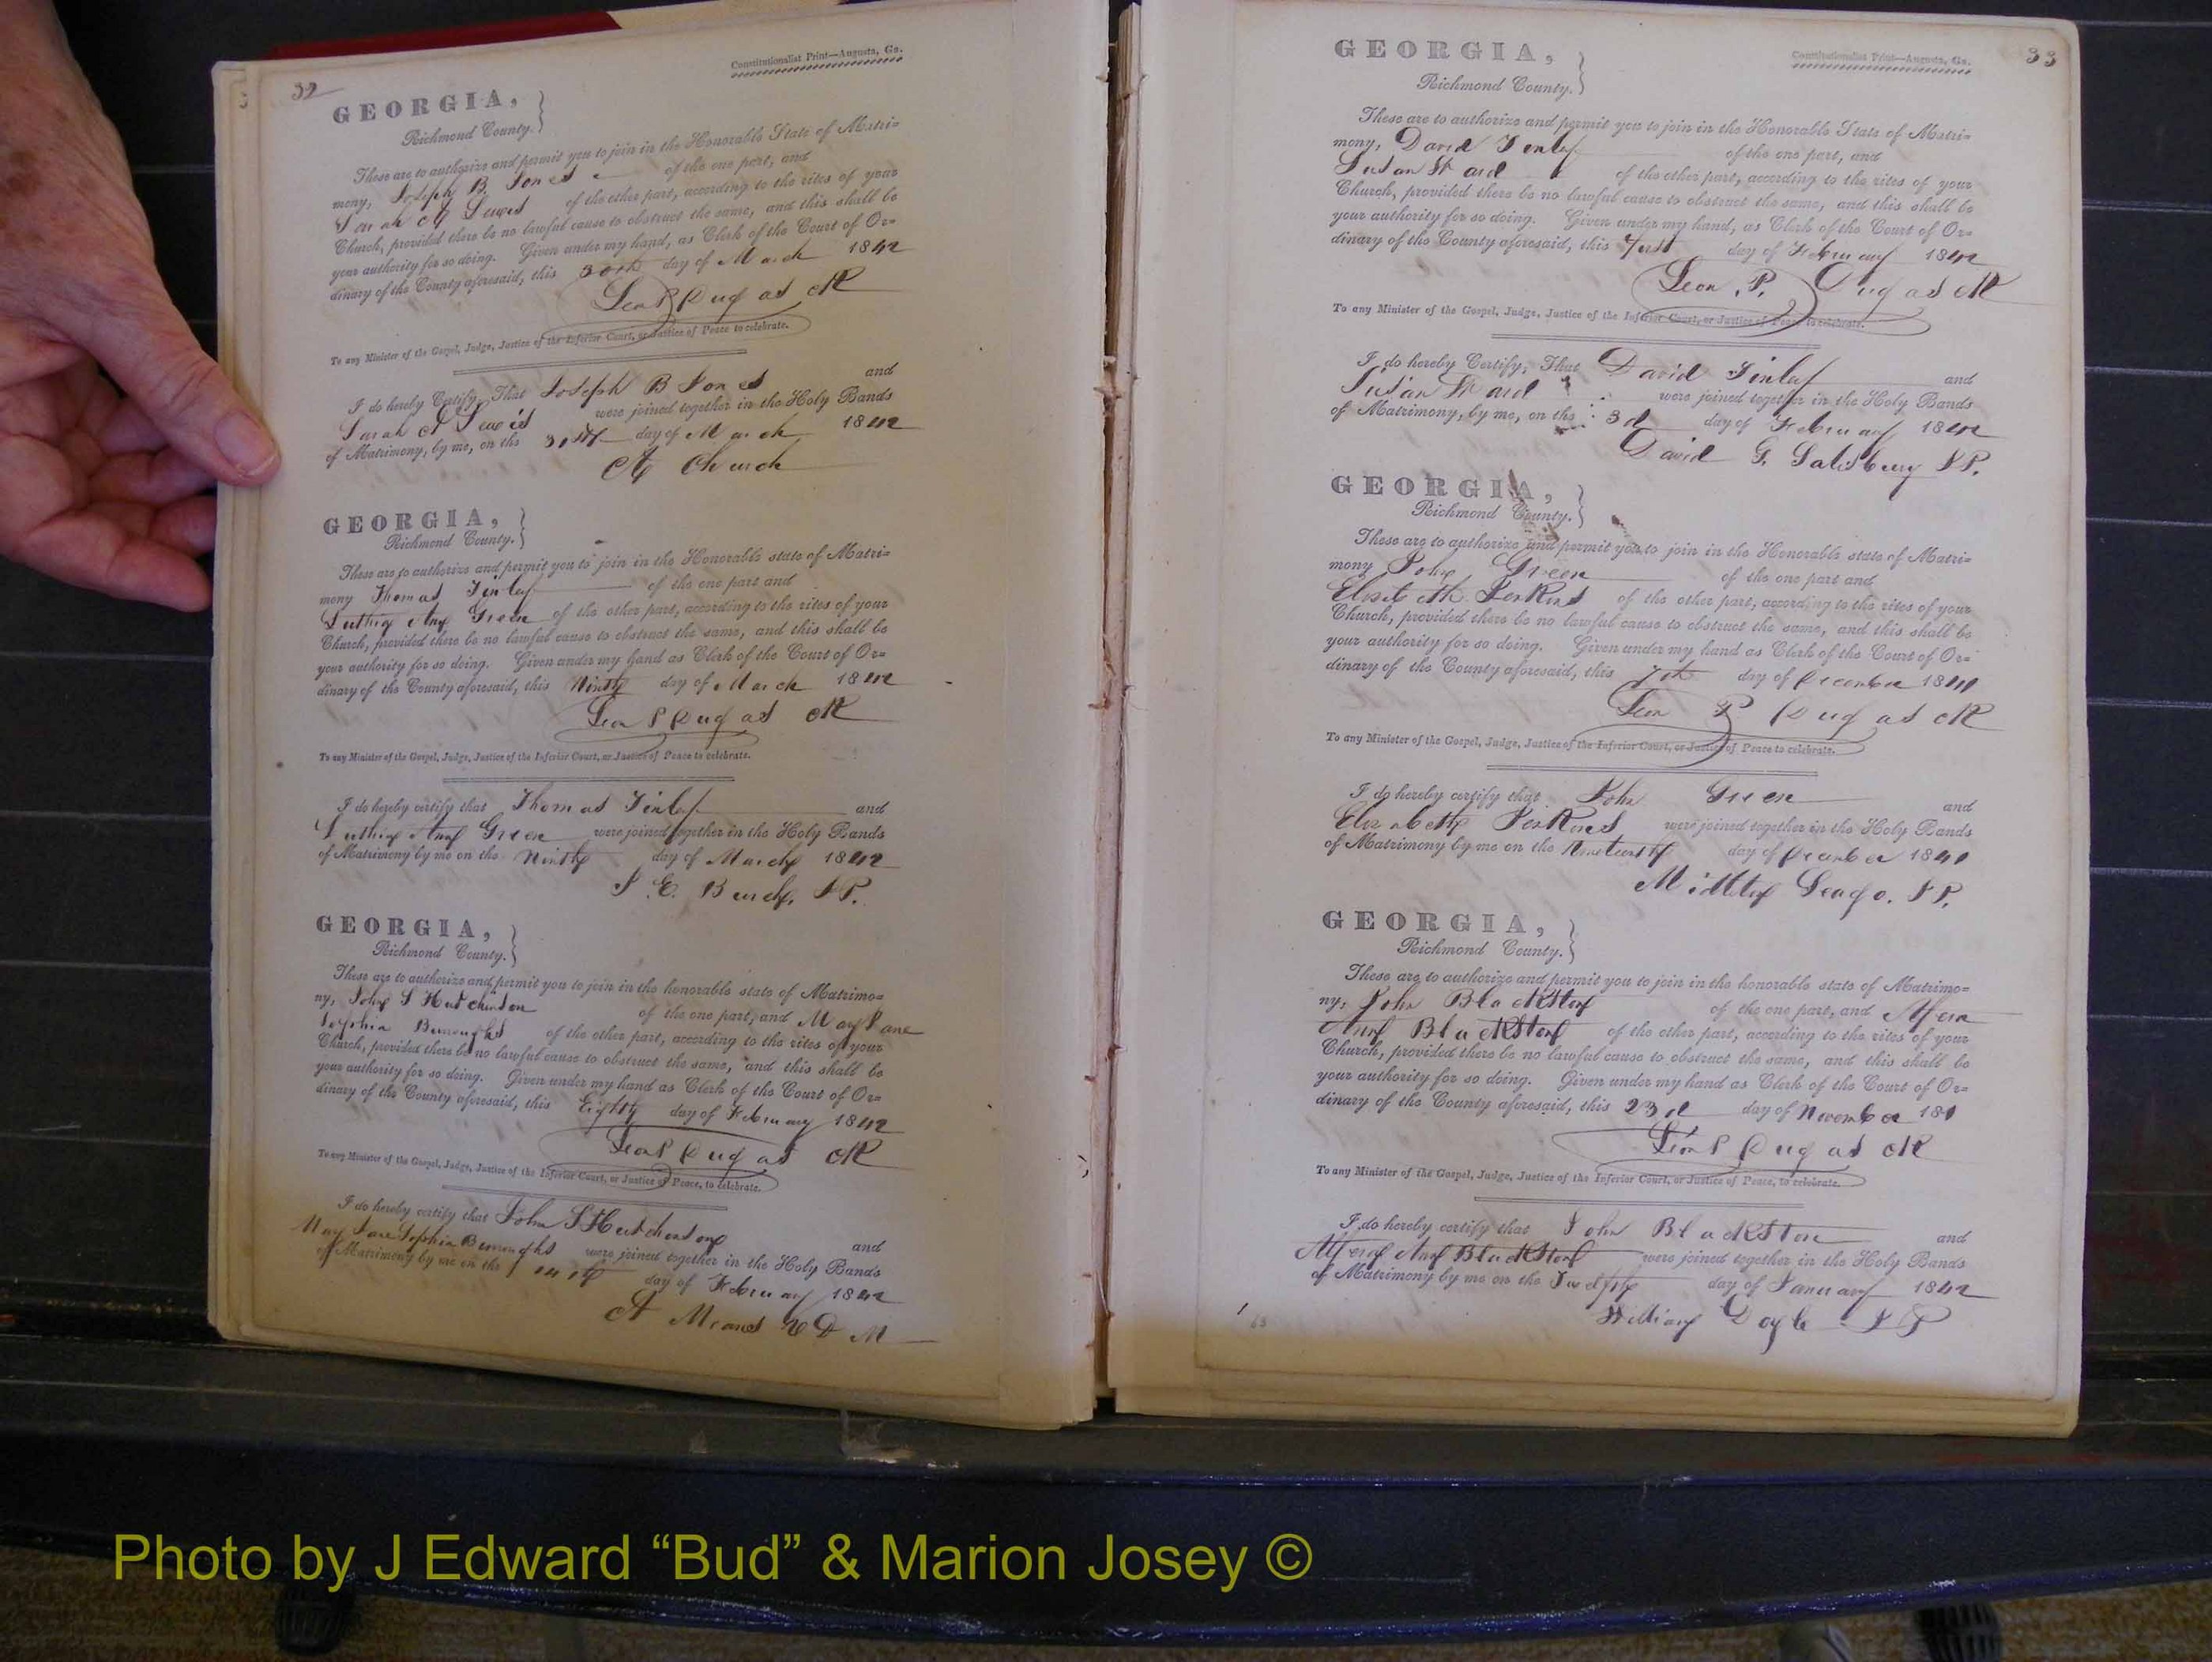 32
Constitutionalist Print—Augusta, Ga.
GEORGIA,
Richmond County.
These are to authorize and permit you to join in the Honorable State of Matri-
mony, Joseph B. Jones of the one part, and
Sarah A Lewis of the other part, according to the rites of your
Church, provided there be no lawful cause to obstruct the same, and this shall be
your authority for so doing. Given under my hand, as Clerk of the Court of Or-
dinary of the County aforesaid, this 30th day of March 1842
Leon P Dugas
To any Minister of the Gospel, Judge, Justice of the Inferior Court, or Justice of Peace to celebrate.
I do hereby Certify, That Joseph B Jones and
Sarah A Lewis were joined together in the Holy Bands
of Matrimony, by me, on the 31st day of March 1842
A Church
GEORGIA,
Richmond County.
These are to authorize and permit you to join in the Honorable state of Matri-
mony Thomas Finley of the one part and
Ann Green of the other part, according to the rites of your
Church, provided there be no lawful cause to obstruct the same, and this shall be
your authority for so doing. Given under my hand as Clerk of the Court of Or-
dinary of the County aforesaid, this Ninth day of March 1842
Leon P Dugas
To any Minister of the Gospel, Judge, Justice of the Inferior Court, or Justice of Peace to celebrate.
I do hereby certify that Thomas Finley and
Ann Green were joined together in the Holy Bands
of Matrimony by me on the Ninth day of March 1842
Burch, JP.
GEORGIA,
Richmond County.
These are to authorize and permit you to join in the honorable state of Matrimo-
ny, John S Hutchinson of the one part, and Mary Jane
Sophia Burroughs of the other part, according to the rites of your
Church, provided there be no lawful cause to obstruct the same, and this shall be
your authority for so doing. Given under my hand as Clerk of the Court of Or-
dinary of the County aforesaid, this Eighth day of February 1842
Leon P Dugas
To any Minister of the Gospel, Judge, Justice of the Inferior Court, or Justice of Peace, to celebrate.
I do hereby certify that John S Hutchinson and
Mary Jane Sophia Burroughs were joined together in the Holy Bands
of Matrimony by me on the 14th day of February 1842
A Means V D M
33
Constitutionalist Print—Augusta, Ga.
GEORGIA,
Richmond County.
These are to authorize and permit you to join in the Honorable State of Matri-
mony, David Finley of the one part, and
Susan Ward of the other part, according to the rites of your
Church, provided there be no lawful cause to obstruct the same, and this shall be
your authority for so doing. Given under my hand, as Clerk of the Court of Or-
dinary of the County aforesaid, this First day of February 1842
Leon. P. Dugas
To any Minister of the Gospel, Judge, Justice of the Inferior Court, or Justice of Peace to celebrate.
I do hereby Certify, That David Finley and
Susan Ward were joined together in the Holy Bands
of Matrimony, by me, on the 3d day of February 1842
David G. Salisbury JP.
GEORGIA,
Richmond County.
These are to authorize and permit you to join in the Honorable state of Matri-
mony John Green of the one part and
Elizabeth Perkins of the other part, according to the rites of your
Church, provided there be no lawful cause to obstruct the same, and this shall be
your authority for so doing. Given under my hand as Clerk of the Court of Or-
dinary of the County aforesaid, this 7th day of December 1841
Leon P Dugas
To any Minister of the Gospel, Judge, Justice of the Inferior Court, or Justice of Peace to celebrate.
I do hereby certify that John Green and
Elizabeth Perkins were joined together in the Holy Bands
of Matrimony by me on the Nineteenth day of December 1841
Seago. JP.
GEORGIA,
Richmond County.
These are to authorize and permit you to join in the honorable state of Matrimo-
ny, John Blackston of the one part, and
Ann Blackston of the other part, according to the rites of your
Church, provided there be no lawful cause to obstruct the same, and this shall be
your authority for so doing. Given under my hand as Clerk of the Court of Or-
dinary of the County aforesaid, this 23d day of November 181
Leon P Dugas
To any Minister of the Gospel, Judge, Justice of the Inferior Court, or Justice of Peace, to celebrate.
I do hereby certify that John Blackston and
Ann Blackston were joined together in the Holy Bands
of Matrimony by me on the Twelfth day of January 1842
William Doyle JP
Photo by J Edward “Bud” & Marion Josey ©